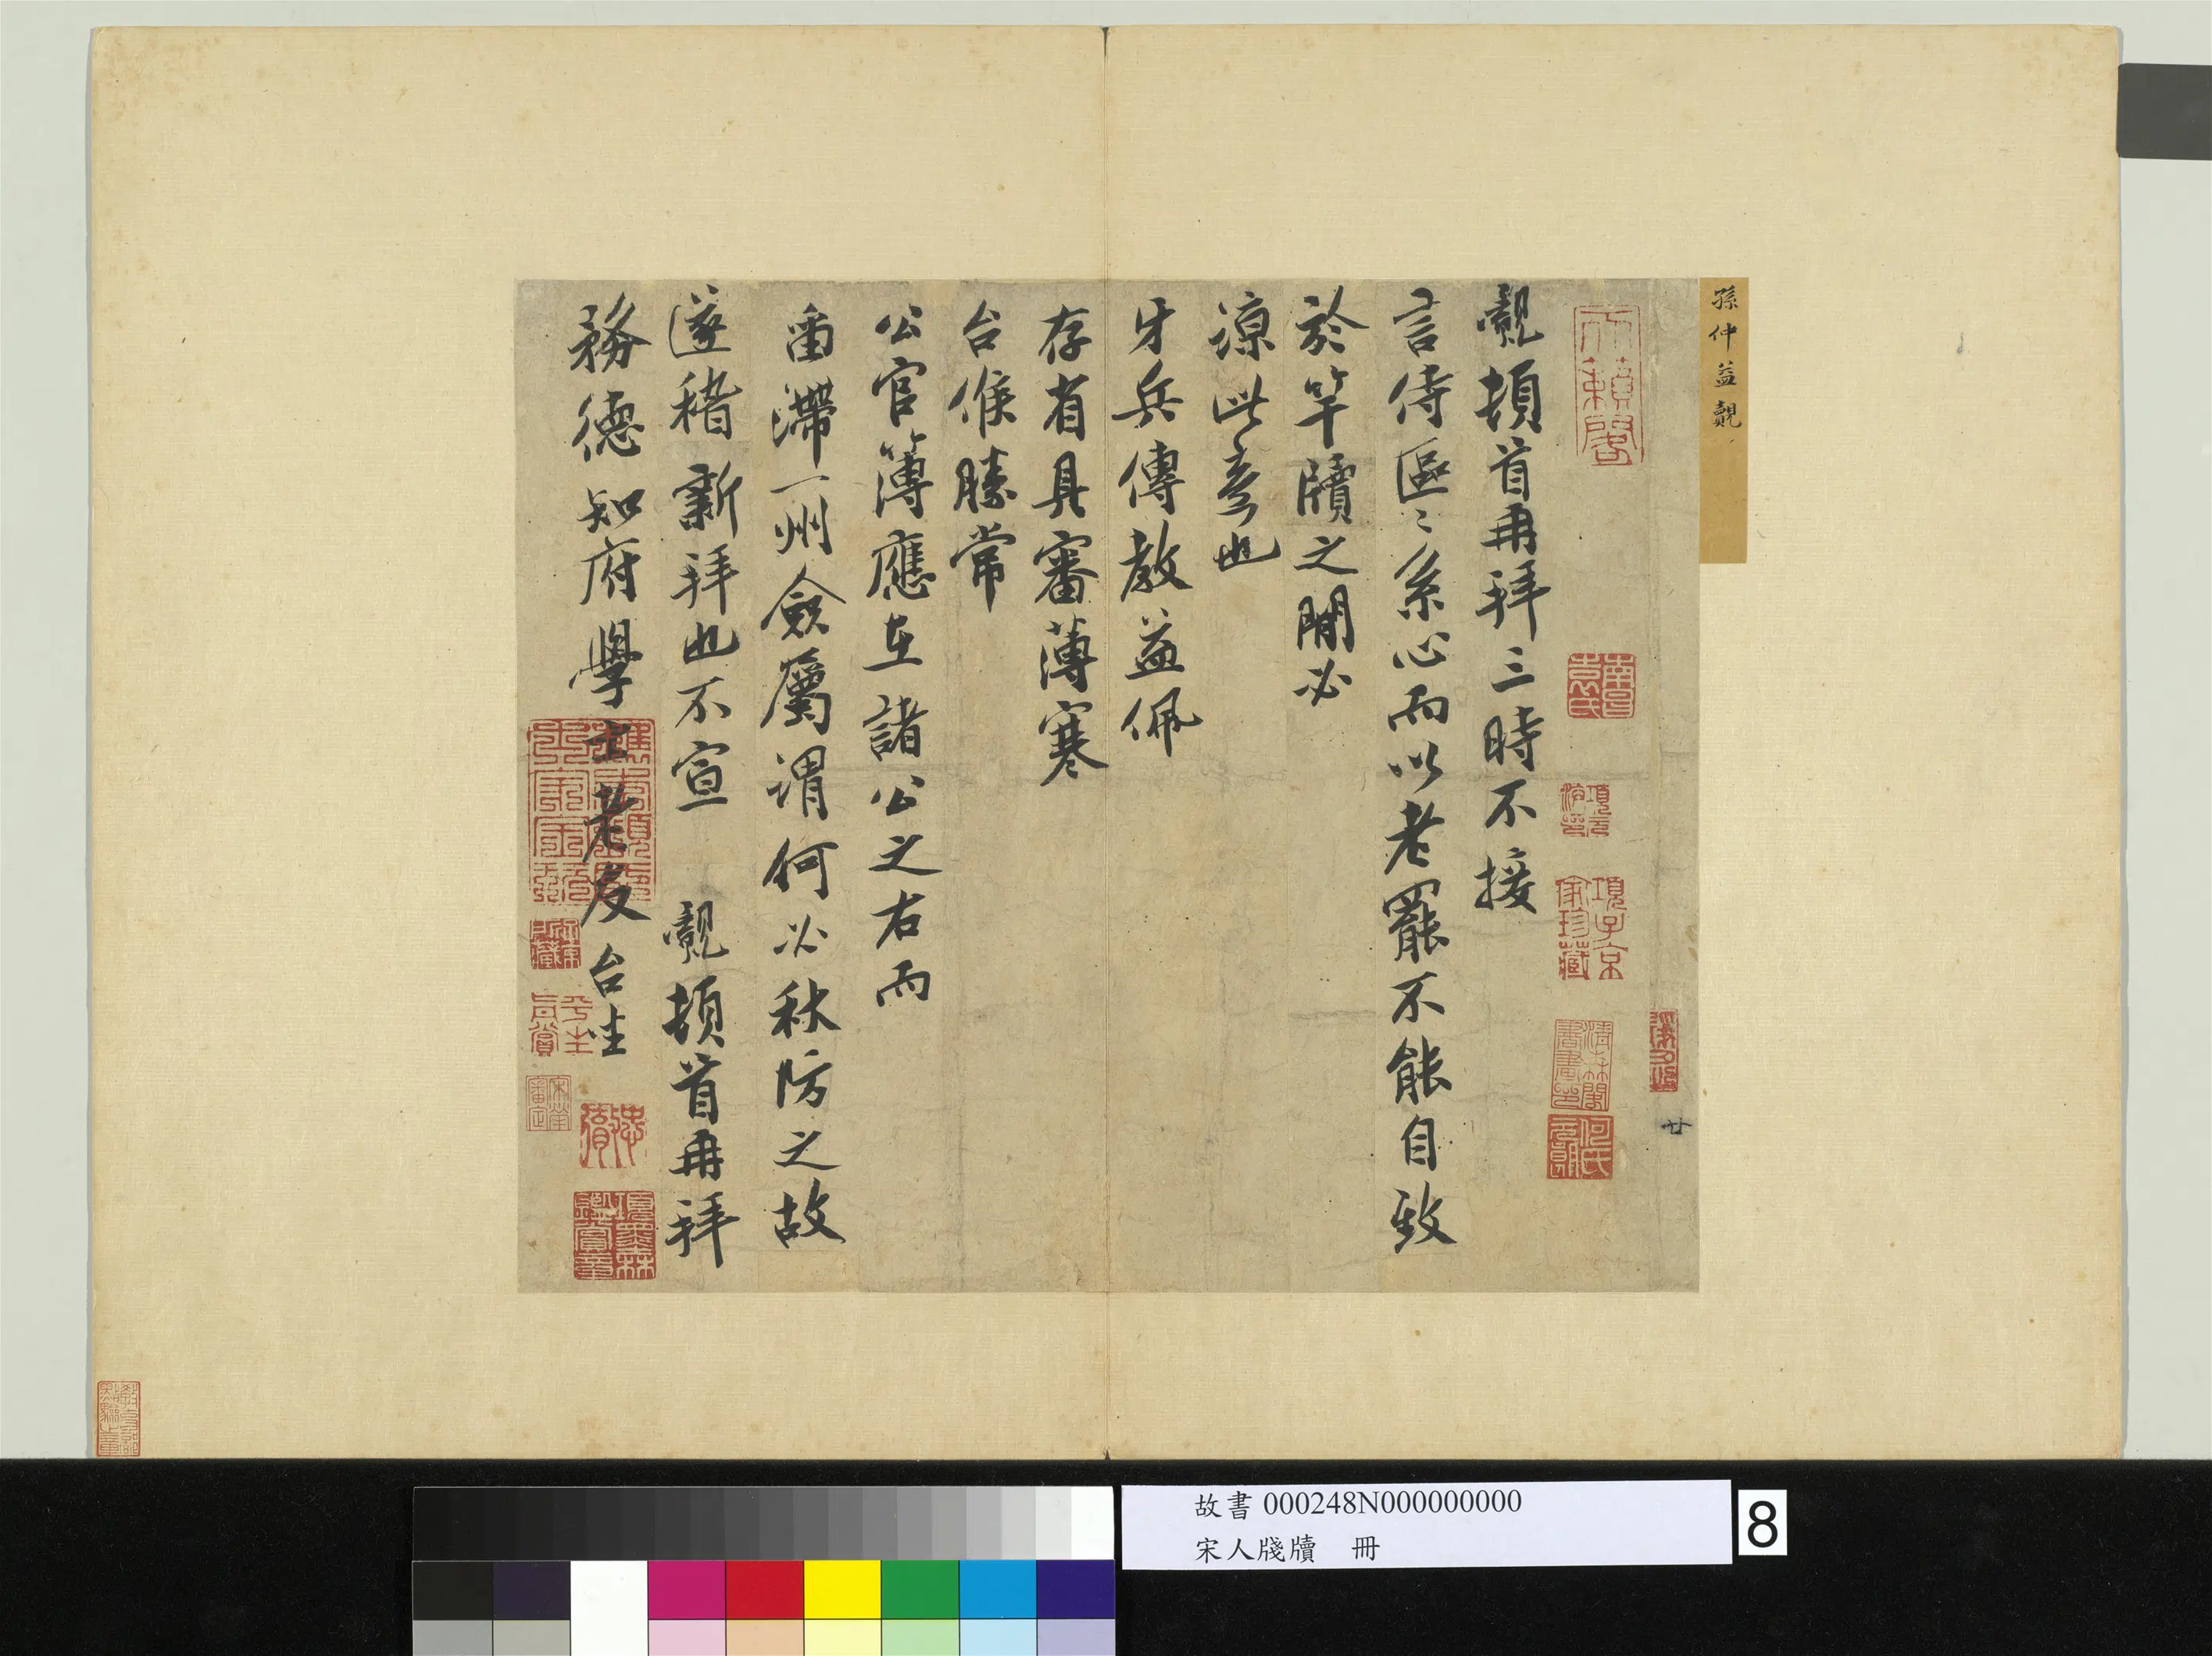 孫仲益覿
覿頓首再拜三時不接
言侍區〻系心而以老罷不能自致
於竿牘之間必
諒此意也
牙兵傳教益佩
存省具審薄寒
台候勝常
公官簿應在諸公之右而
留滯一州僉屬謂何必秋防之故
遂稽新拜也不宣　覿頓首再拜
務德知府學士老友台坐
天籟閣
項子京家珍藏
平生真賞
項墨林鑑賞章
廿
故書000248N000000000
宋人牋牘　冊
8